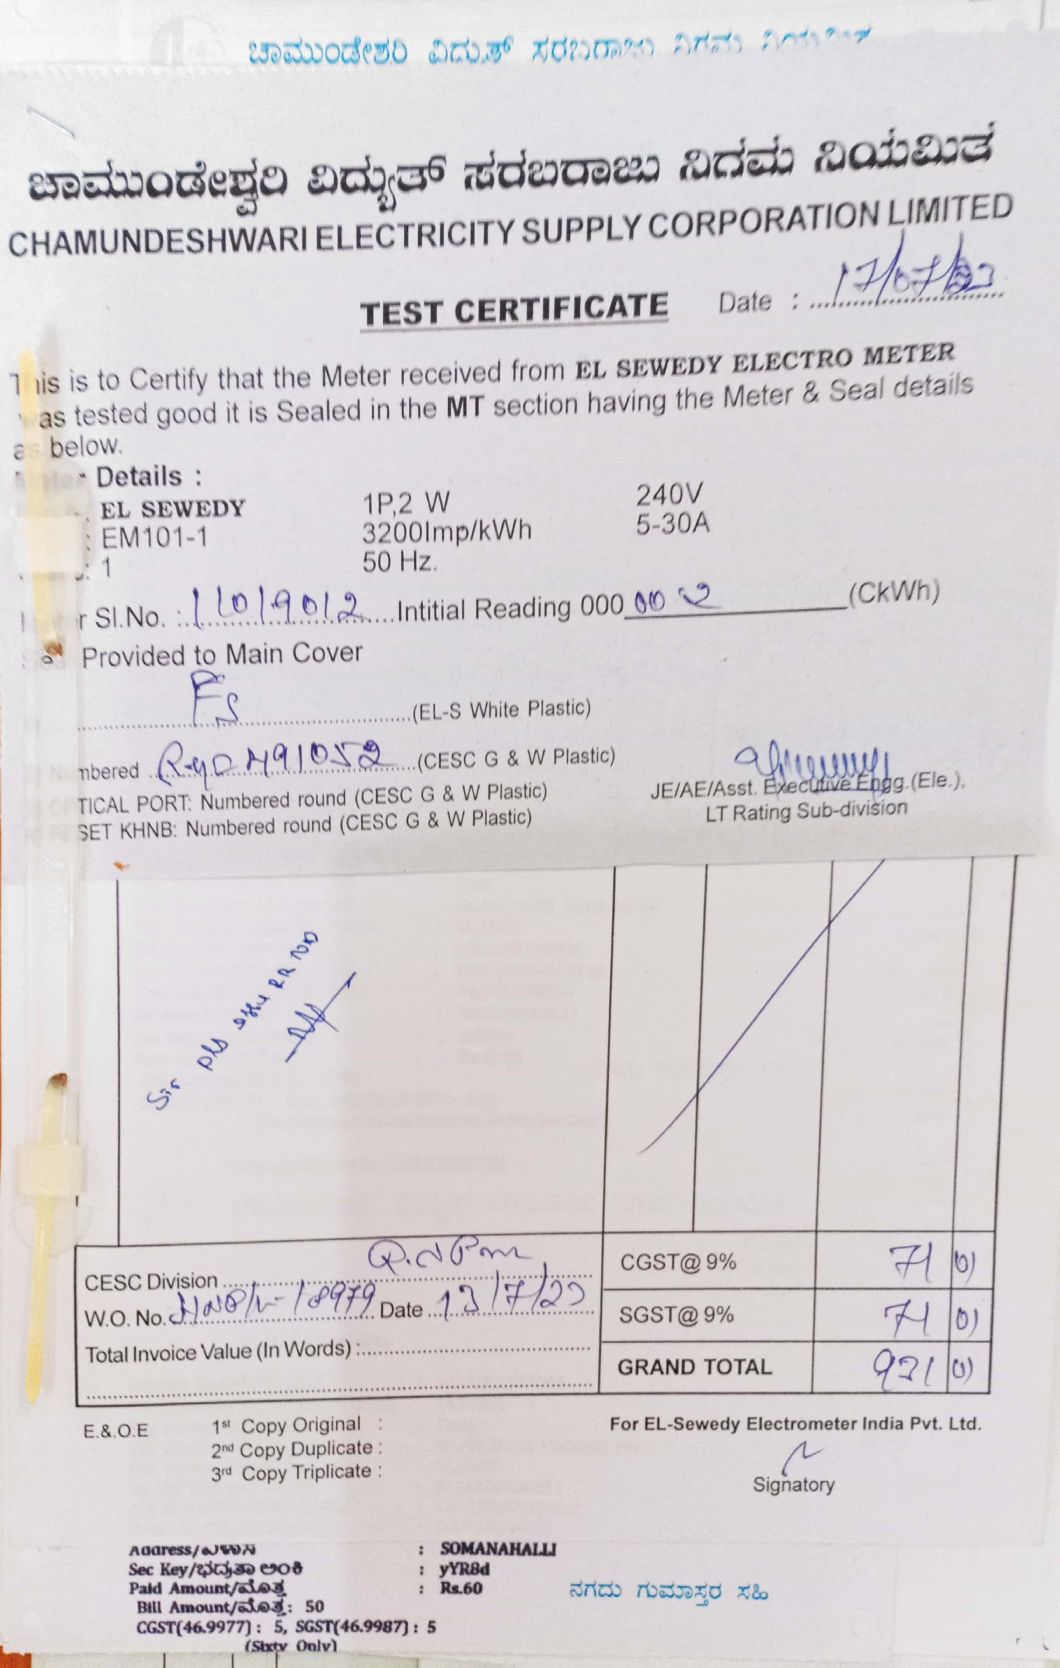 ಚಾಮುಂಡೇಶ್ವರಿ ವಿದ್ಯುತ್ ಸರಬರಾಜು ನಿಗಮ ನಿಯಮಿತ
ಚಾಮುಂಡೇಶ್ವರಿ ವಿದ್ಯುತ್ ಸರಬರಾಜು ನಿಗಮ ನಿಯಮಿತ
CHAMUNDESHWARI ELECTRICITY SUPPLY CORPORATION LIMITED
TEST CERTIFICATE Date : 17/07/23
This is to Certify that the Meter received from EL SEWEDY ELECTRO METER
was tested good it is Sealed in the MT section having the Meter & Seal details
as below.
Details :
EL SEWEDY 1P,2 W 240V
: EM101-1 3200Imp/kWh 5-30A
: 1 50 Hz.
Sl.No. : 11019012 Intitial Reading 000 002 (CkWh)
Provided to Main Cover
(EL-S White Plastic)
mbered (CESC G & W Plastic)
TICAL PORT: Numbered round (CESC G & W Plastic) JE/AE/Asst. Executive Engg.(Ele.),
SET KHNB: Numbered round (CESC G & W Plastic) LT Rating Sub-division
Sir
CESC Division CGST@ 9% 71 01
W.O. No. 18979 Date 13/7/23 SGST@ 9% 71 01
Total Invoice Value (In Words) : GRAND TOTAL 931 01
E.& O.E 1st Copy Original : For EL-Sewedy Electrometer India Pvt. Ltd.
2nd Copy Duplicate :
3rd Copy Triplicate : Signatory
Address/ವಿಳಾಸ : SOMANAHALLI
Sec Key/ಭದ್ರತಾ ಅಂಕಿ : yYR8d
Paid Amount/ಮೊತ್ತ : Rs.60 ನಗದು ಗುಮಾಸ್ತರ ಸಹಿ
Bill Amount/ಮೊತ್ತ: 50
CGST(46.9977) : 5, SGST(46.9987) : 5
(Sixty Only)